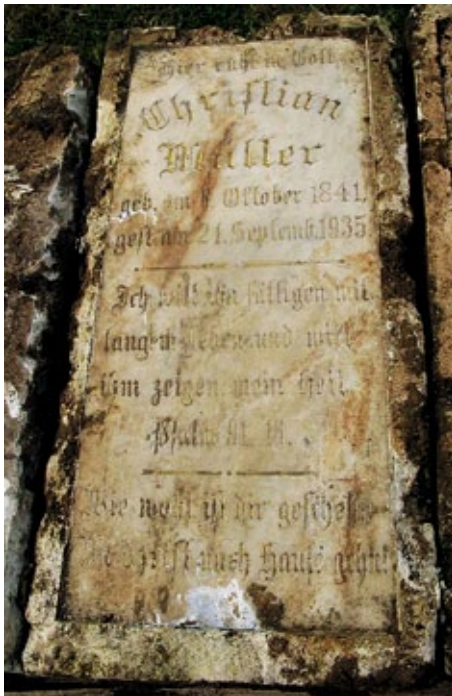 Hier ruht in Gott
Christian
Müller
geb. am 8. Oktober 1841,
gest. am 21. Septemb. 1935
Ich will ihn sättigen mit
langem Leben und will
ihm zeigen mein Heil.
Psalm 91. 16.
Wie wohl ist dir geschehn
nach Hause gehn!